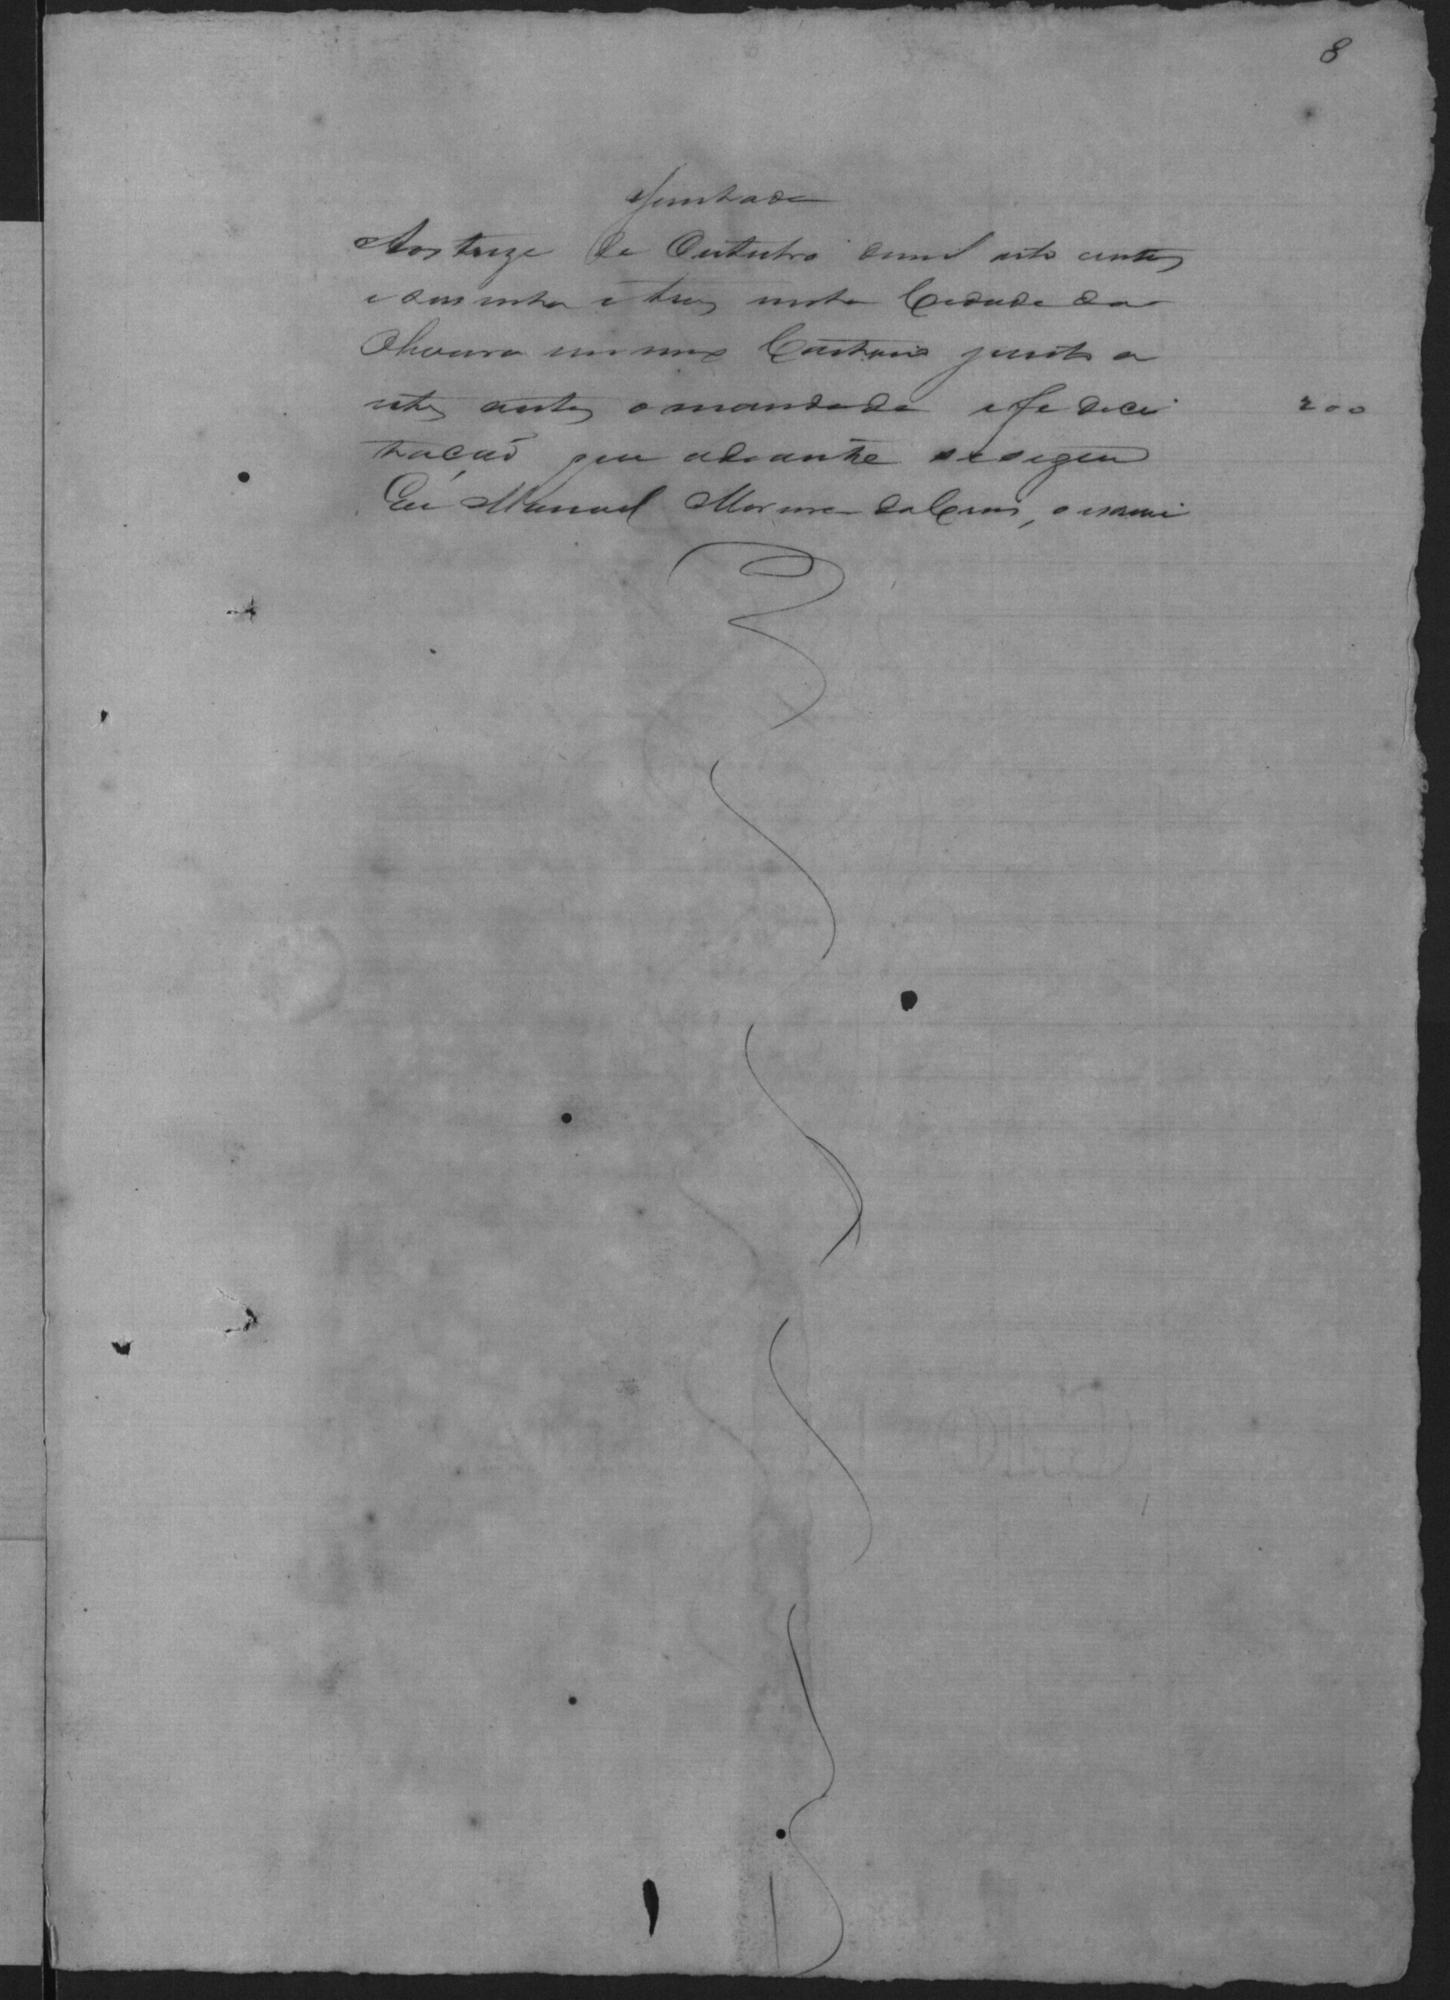 8
Juntada
Aos treze de Outubro demil oito centos
e sessenta e tres nesta Cidade da
Oliveira em meu Cartorio junto a
estes autos o mandado e fe deci
tacaõ que adiante sesegue
Eu Manoel Moreira daCruz, o escrevi
200